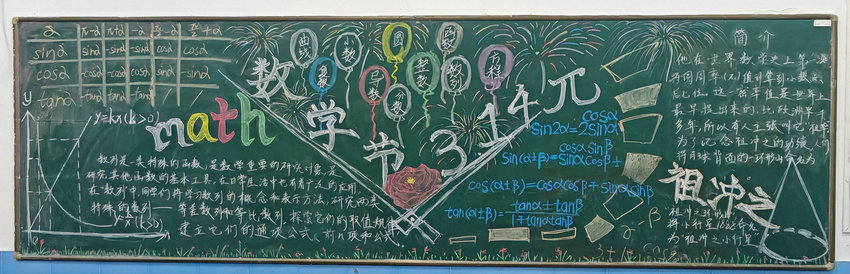 α π-α π+α -α π/2-α π/2+α
sinα sinα -sinα -sinα cosα cosα
cosα -cosα -cosα cosα sinα -sinα
tanα -tanα tanα -tanα
y
y=kx(k>0)
math
数学节 3.14 π
曲线
小数
圆
函数
复数
整数
数列
方程
已数
分数
数列是一类特殊的函数,是数学重要的研究对象,是
研究其他函数的基本工具,在日常生活中也有着广泛的应用
在"数列"中,同学们将学习数列的概念和表示方法,研究两类
特殊的数列——等差数列和等比数列,探索它们的取值规律,
建立它们的通项公式、前n项和公式
(k>0)
sin2α=2sinα
cosα
cosα sinβ
sin(α±β)=sinαcosβ±
cos(α±β)=cosαcosβ∓sinαsinβ
tan(α±β)=
tanα±tanβ
1∓tanαtanβ
简介
他在世界数学史上第一次
将圆周率(π)值计算到小数点
后七位,这一圆周率值是世界上
最早提出来的,比欧洲早一千
多年,所以有人主张叫它"祖率"
为了纪念祖冲之的功绩,人们
将月球背面的一环形山命名为
祖冲之
"祖冲之环形山"
将小行星1888命名
为"祖冲之小行星"
β